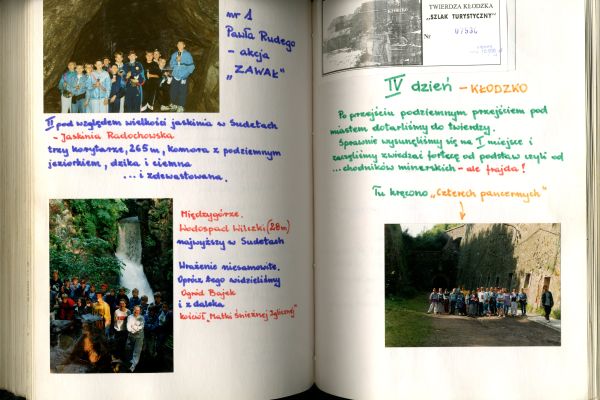 nr 1
Pawła Rudego
- akcja
„ZAWAŁ"
II pod względem wielkości jaskinia w Sudetach
- Jaskinia Radochowska
trzy korytarze, 265 m, komora z podziemnym
jeziorkiem, dzika i ciemna
... i zdewastowana.
Międzygórze.
Wodospad Wilczki (28m)
najwyższy w Sudetach
Wrażenie niesamowite.
Oprócz tego widzieliśmy
Ogród Bajek
i z daleka
kościół „Matki Śnieżnej Iglicznej"
TWIERDZA KŁODZKA
„SZLAK TURYSTYCZNY"
Nr
IV dzień - KŁODZKO
Po przejściu podziemnym przejściem pod
miastem dotarliśmy do twierdzy.
Sprawnie wysunęliśmy się na I miejsce i
zaczęliśmy zwiedzać fortecę od podstaw czyli od
... chodników minerskich - ale frajda!
Tu kręcono „Czterech pancernych"